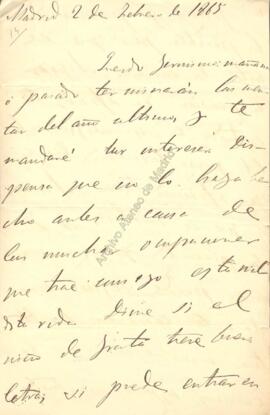 Madrid 2 de Febrero de 1865
Querido Jeronimo: mañana
ó pasado terminarán las cuen
tas del año ultimo, y te
mandaré tus intereses, dis
pensa que no lo haya he
cho antes a causa de
las muchas ocupaciones
que trae consigo esta
vida. Dime si el
de Grata tiene buena
letra, si puede entrar en
Archivo Ateneo de Madrid